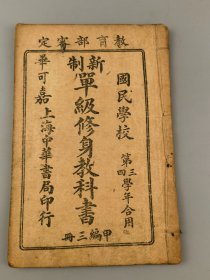 教育部審定
國民學校
第三四學年合用
新制
單級修身教科書
甲編三冊
畢可嘉
上海中華書局印行